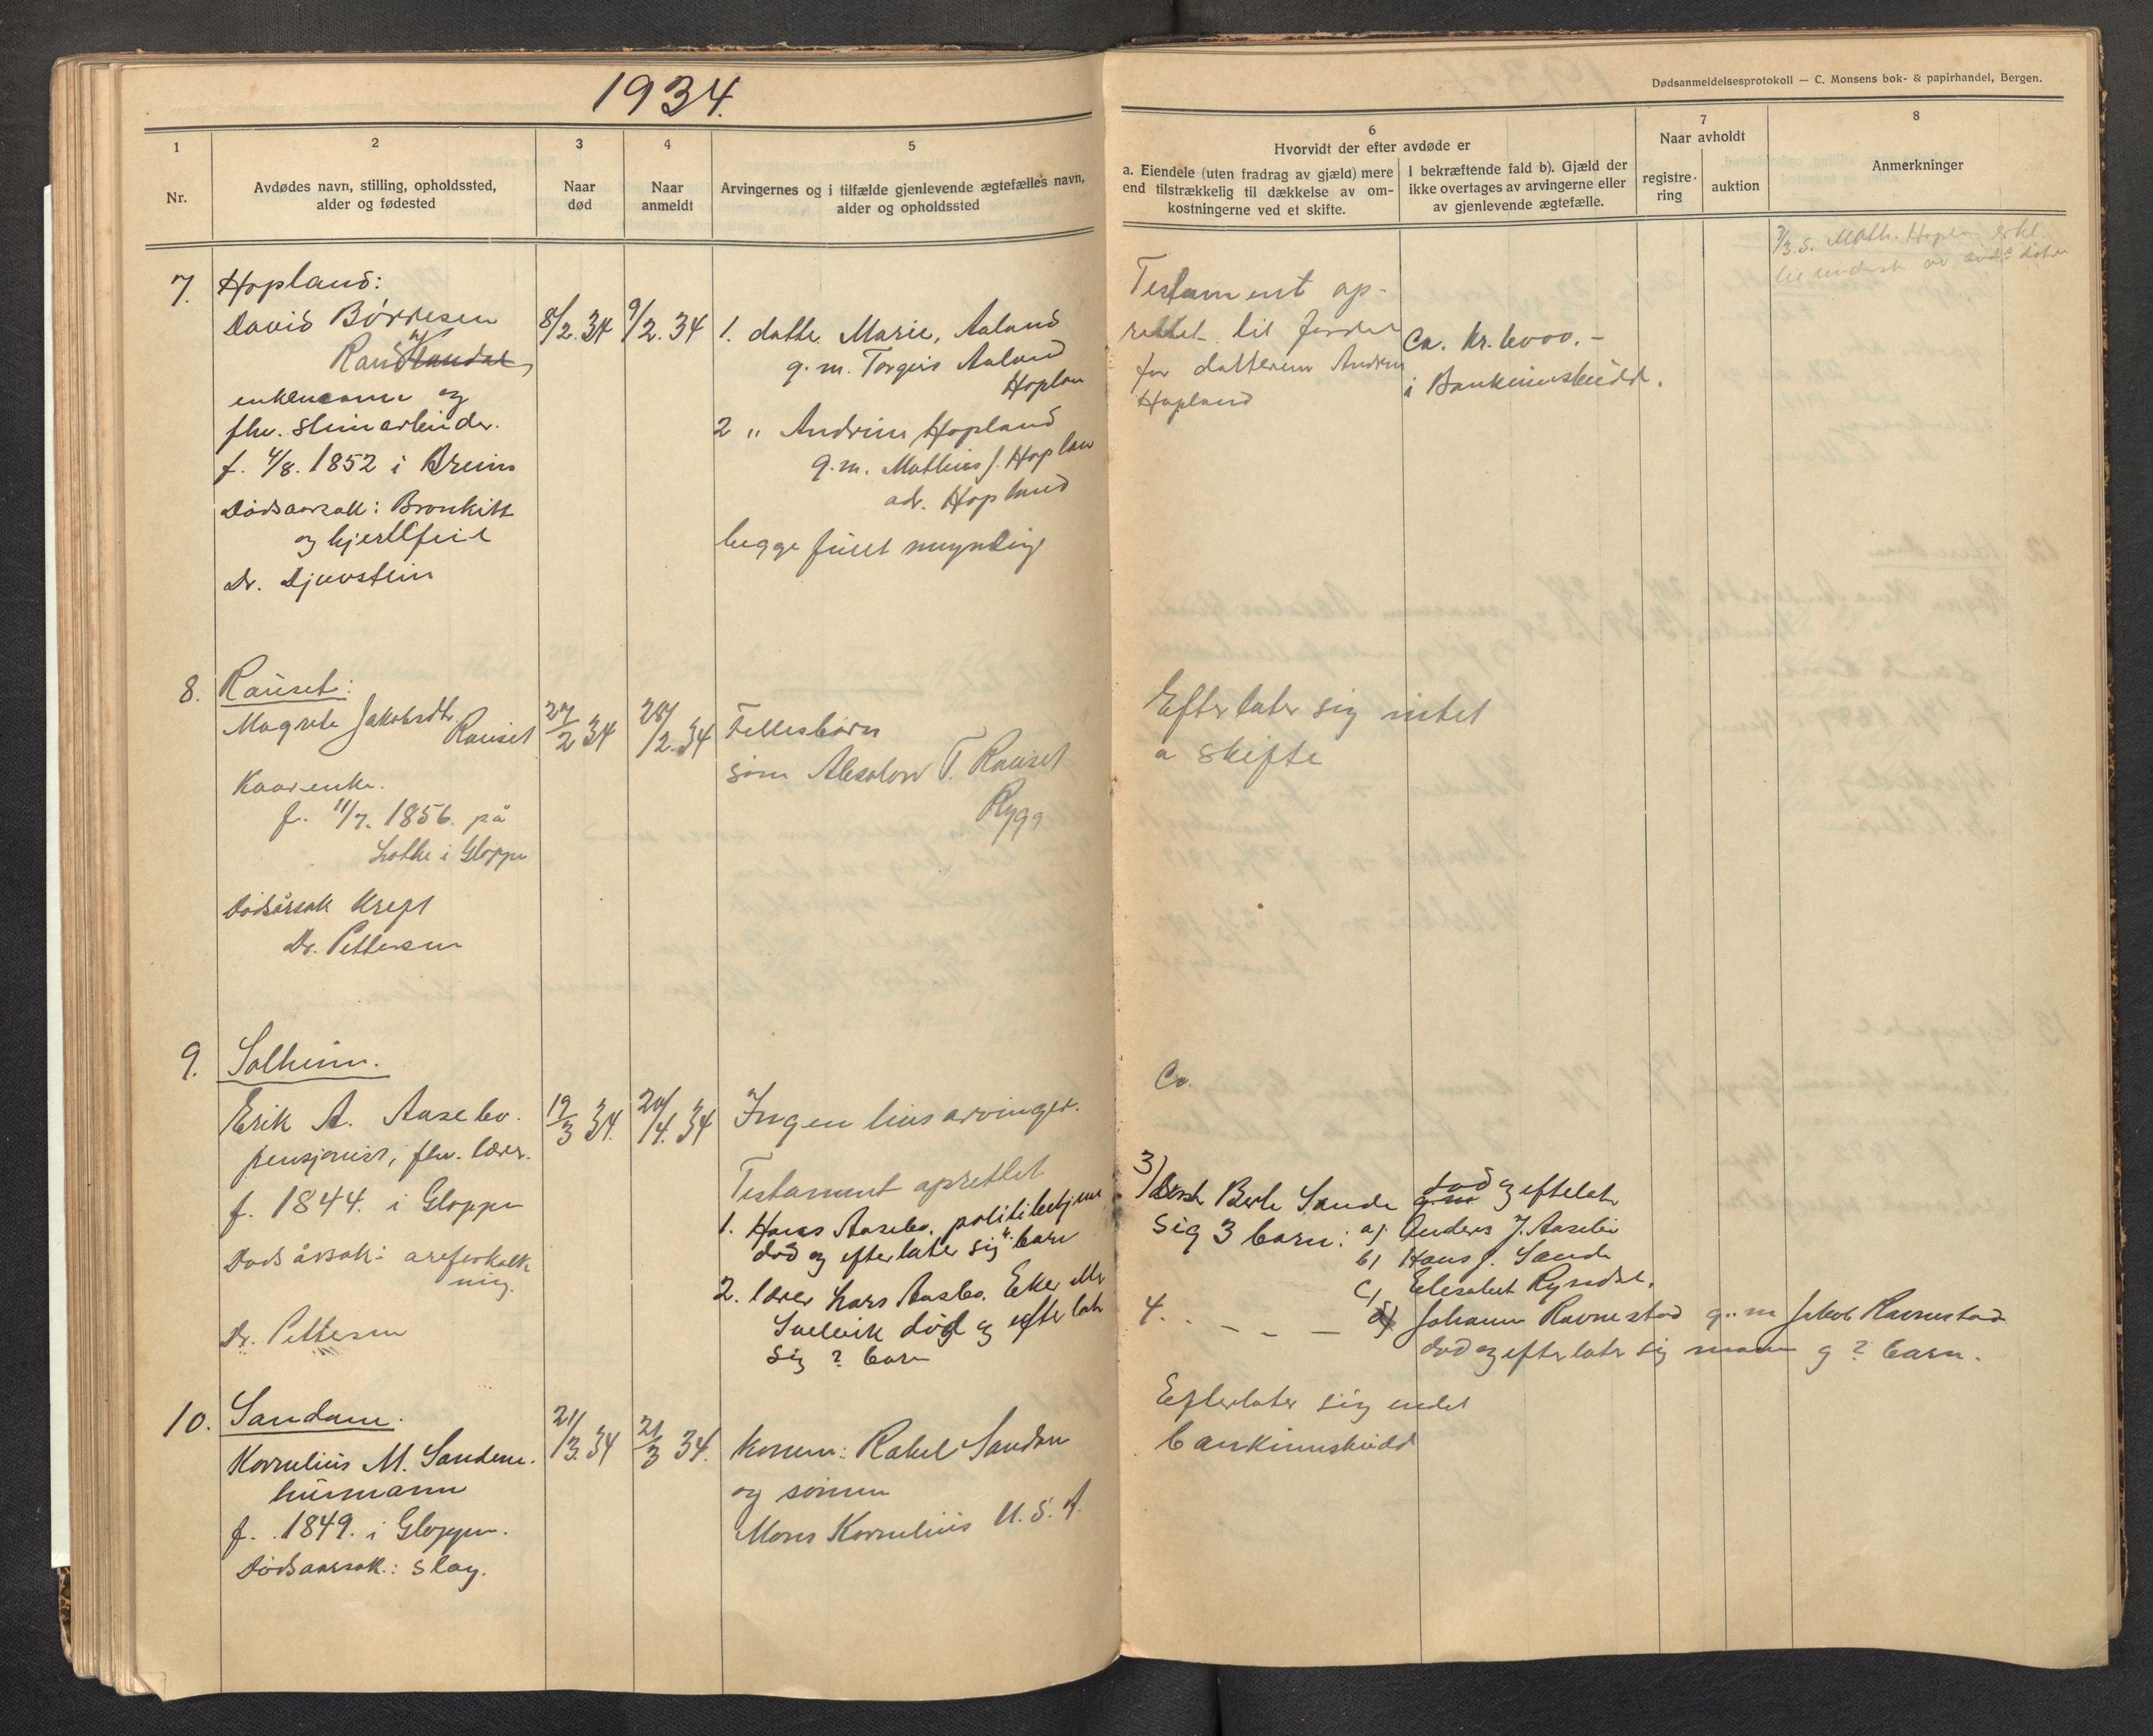 1934.
Dødsanmeldelsesprotokoll — C. Monsens bok- & papirhandel, Bergen.
1
Nr.
2
Avdødes navn, stilling, opholdssted,
alder og fødested
3
Naar
død
4
Naar
anmeldt
5
Arvingernes og i tilfælde gjenlevende ægtefælles navn,
alder og opholdssted
6
Hvorvidt der efter avdøde er
a. Eiendele (uten fradrag av gjæld) mere
end tilstrækkelig til dækkelse av om-
kostningerne ved et skifte.
I bekræftende fald b). Gjæld der
ikke overtages av arvingerne eller
av gjenlevende ægtefælle.
7
Naar avholdt
registre-
ring
auktion
8
Anmerkninger
7. Hopland:
David Börresen
Rand
enkemann og
fhv. stenarbeider.
f. 4/8. 1852 i Breim
Dødsaarsak: Bronkitt
og hjertefeil
Dr. Djuvstein
8/2. 34
9/2. 34
1. datte Marie, Aaland
g. m. Torgeir Aaland
Hoplan
2 " Andrine Hopland
g. m. Mathias J. Hoplan
adr. Hopland
begge fuldt myndig
Testament op-
rettet til fordel
for datteren Andrin
Hopland
Ca. kr. 6000.-
i Bankinnskudd.
8. Rauset:
Magrete Jakobsdtr.
Rauset
Kaarenke.
f. 11/7. 1856. på
Lothe i Gloppe
Dødsårsak Kreft
Dr. Pettersen
27/2 34
28/2. 34
Fellesbarn
søn Absalon T. Rauset
Rygg
Efterlater sig intet
a skifte
9. Solheim.
Erik A. Aasebø.
pensjonist, fhv. lærer.
f. 1844. i Gloppen
Døds årsak: areforkalk
ning.
Dr. Pettersen
19/3 34.
20/4. 34
Ingen livsarvinger.
Testament oprettet
1. Hans Aasebø. politibetjent
død og efterlater sig 4. barn
2. lærer Lars Aasebø. Eker
død og efterlate
sig ? barn
Ca.
3) Berte Sande g.m død og efterlate
sig 3 barn: a) Anders J. Aasebø
b) Hans J. Sande
c) Elesabet Ryndal.
4. . - - - d) Johanne Ravnestad g.m Jakob Ravnestad
død og efterlater sig mann og ? barn.
10. Sandane.
Kornelius M. Sandene.
husmann
f. 1849. i Gloppen.
Dødsaarsak.: slag.
21/3. 34
21/3 34.
Konen: Rakel Sandene
og sønnen
Mons Kornelius U. S. A.
Efterlater sig endel
bankinnskudd